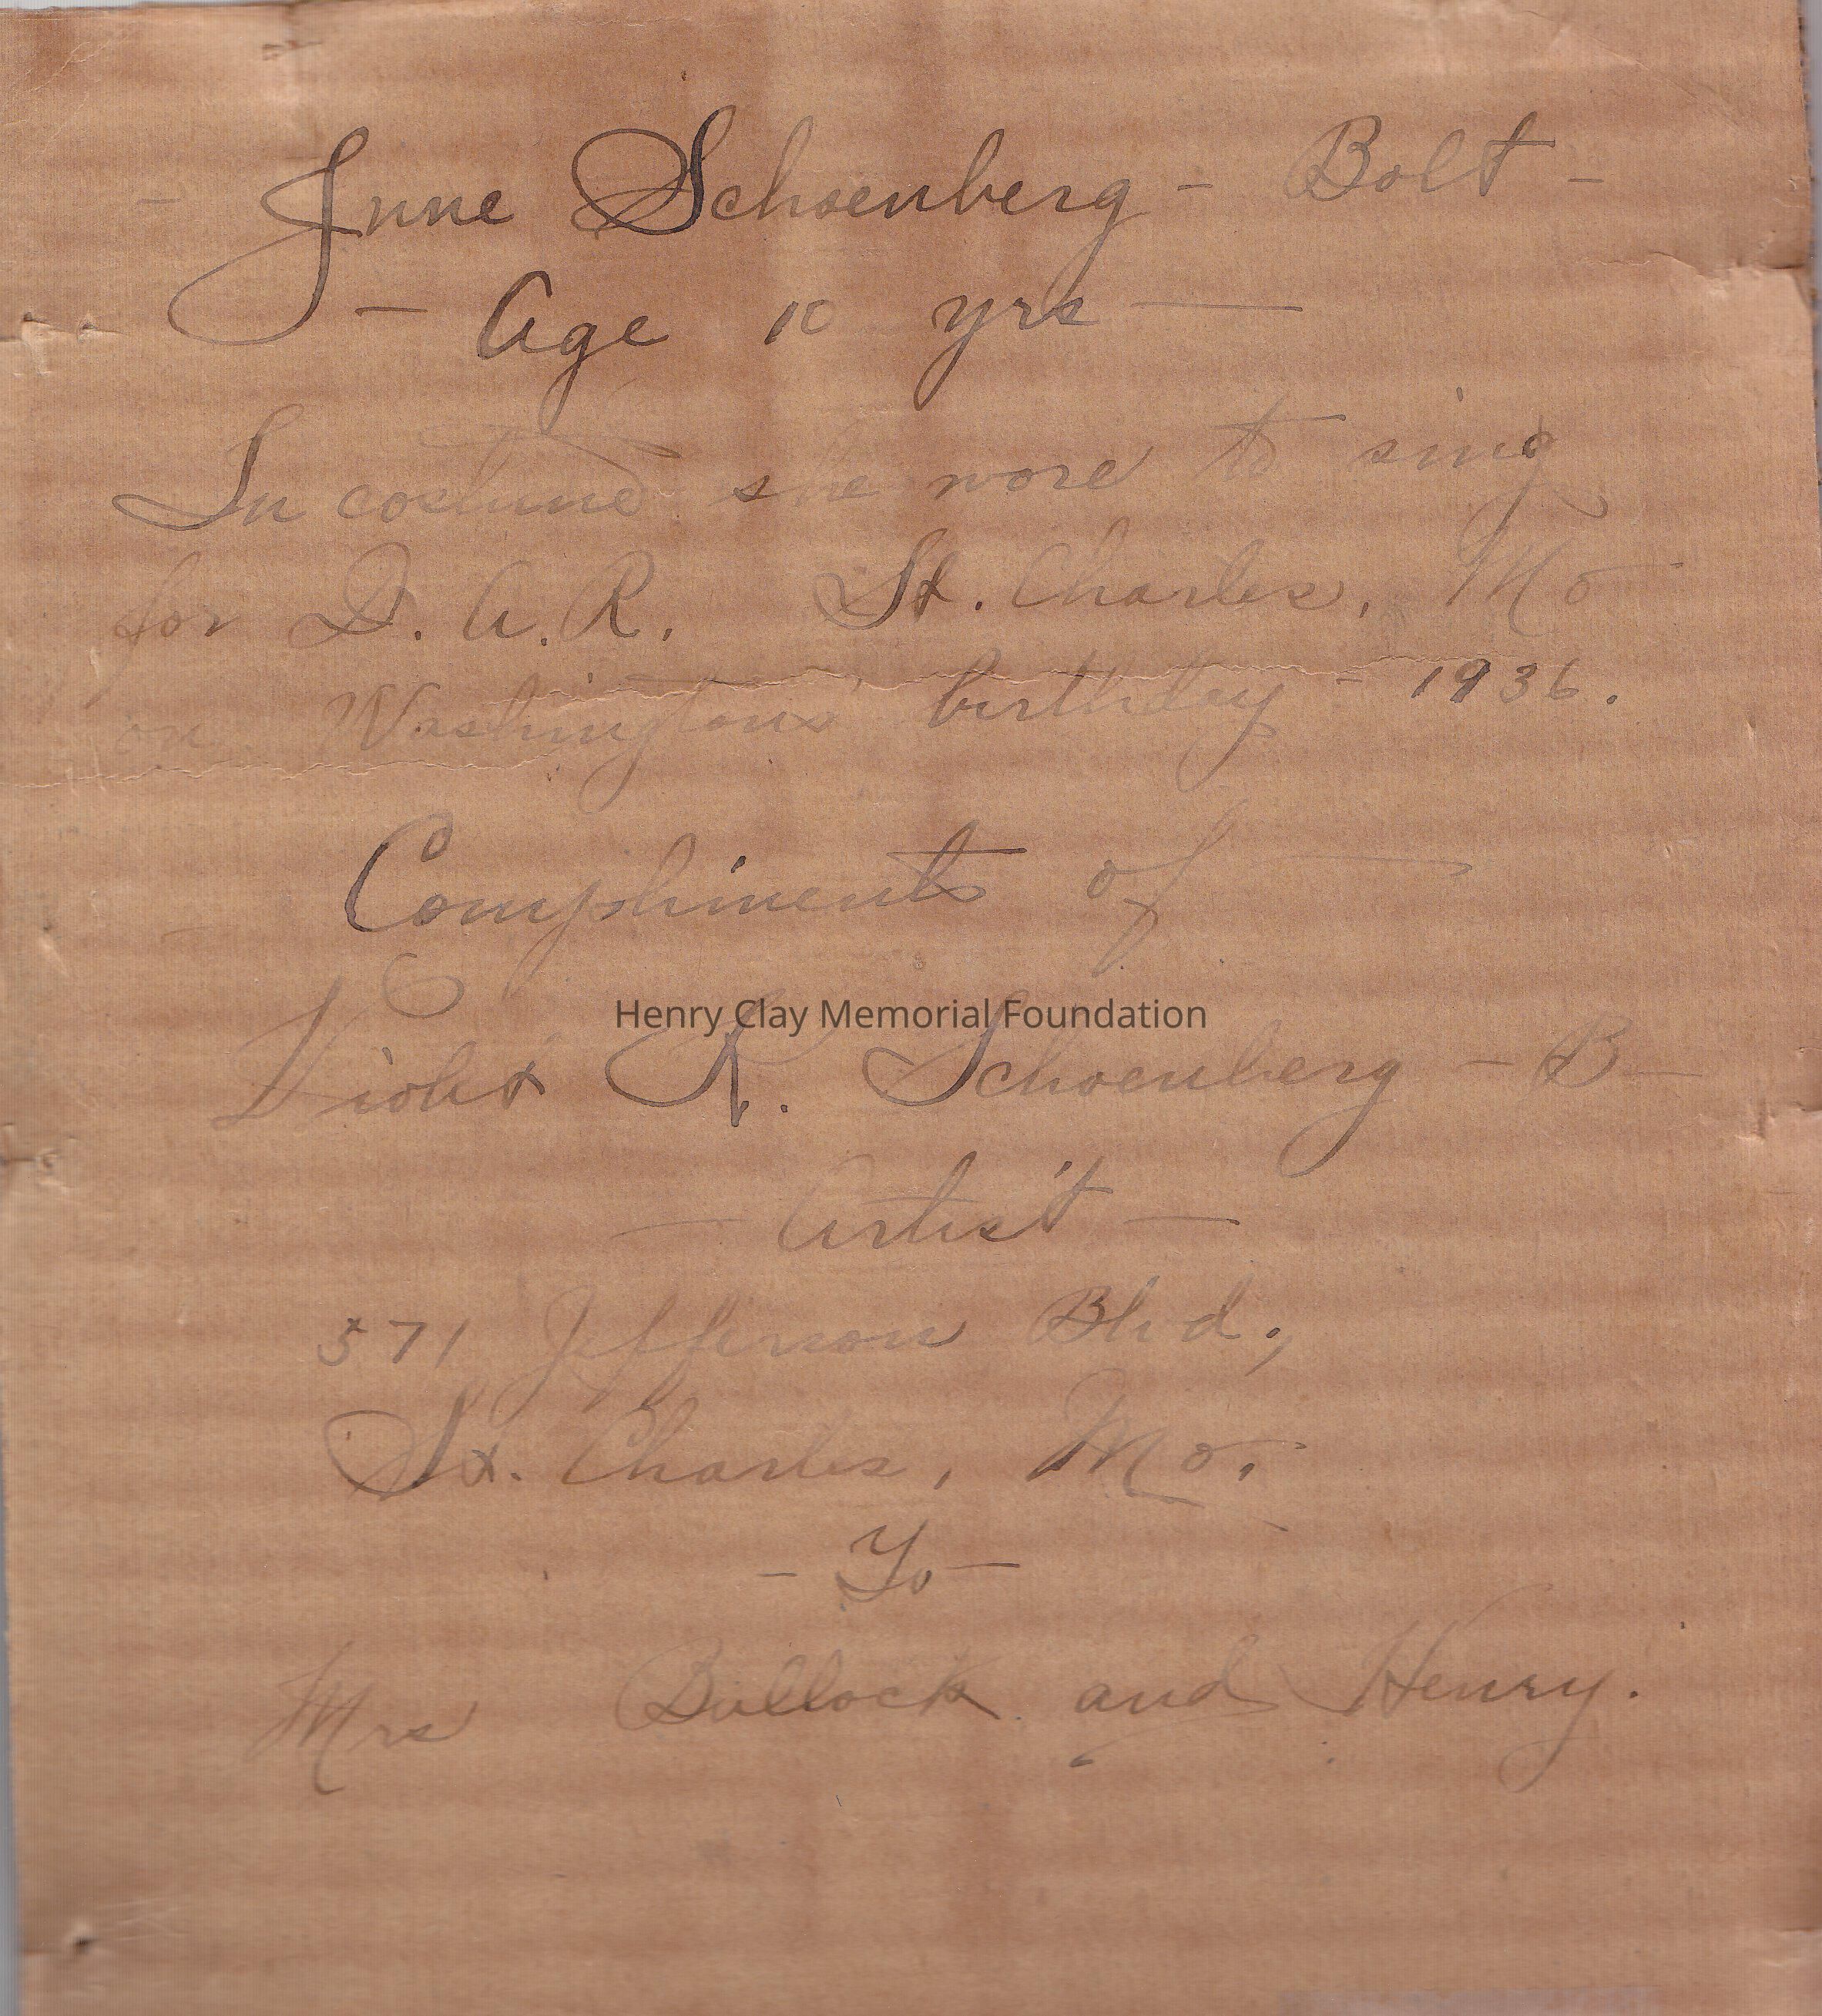 - June Schoenberg - Bolt -
- Age 10 yrs -
In costume she wore to sing
for D.A.R. St. Charles, Mo
on Washingtons' birthday - 1936.
Compliments of -
Violet R. Schoenberg - B -
Henry Clay Memorial Foundation
- Artist -
571 Jefferson Blvd.,
St. Charles, Mo.
- To -
Mrs Bullock and Henry.